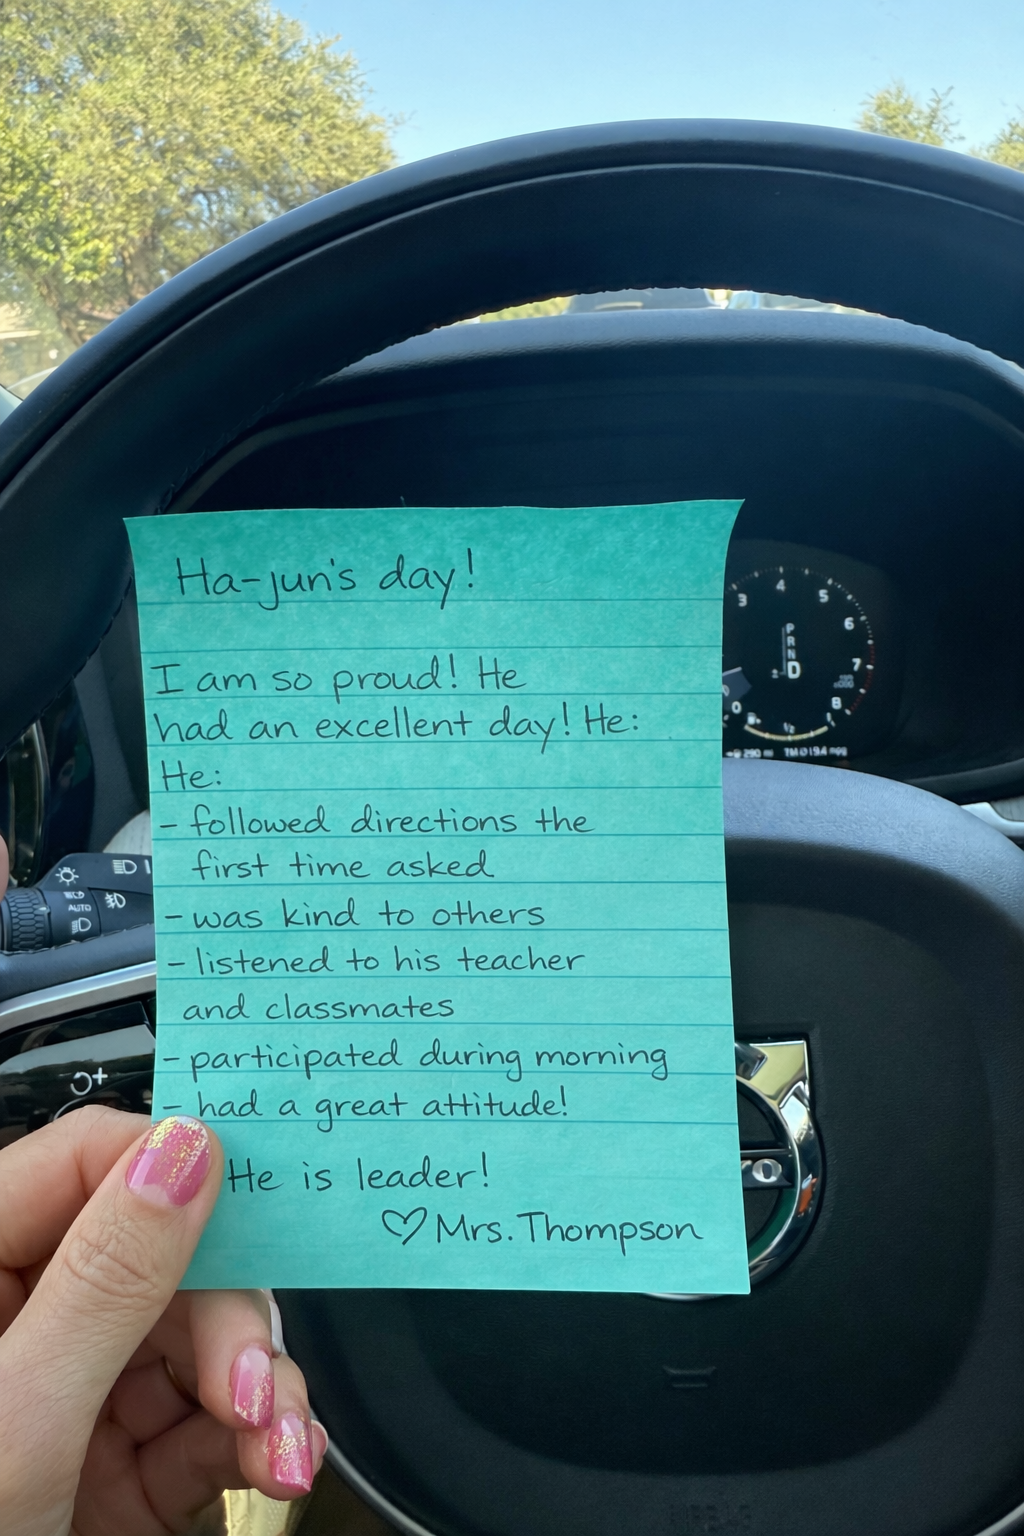 Ha-jun's day!
I am so proud! He
had an excellent day! He:
He:
- followed directions the
first time asked
- was kind to others
- listened to his teacher
and classmates
- participated during morning
- had a great attitude!
He is leader!
♡ Mrs. Thompson
3 4 5 6 7 8
0
P
R
N
D
1/2
290 mi TM Ø 19.4 mpg
AUTO